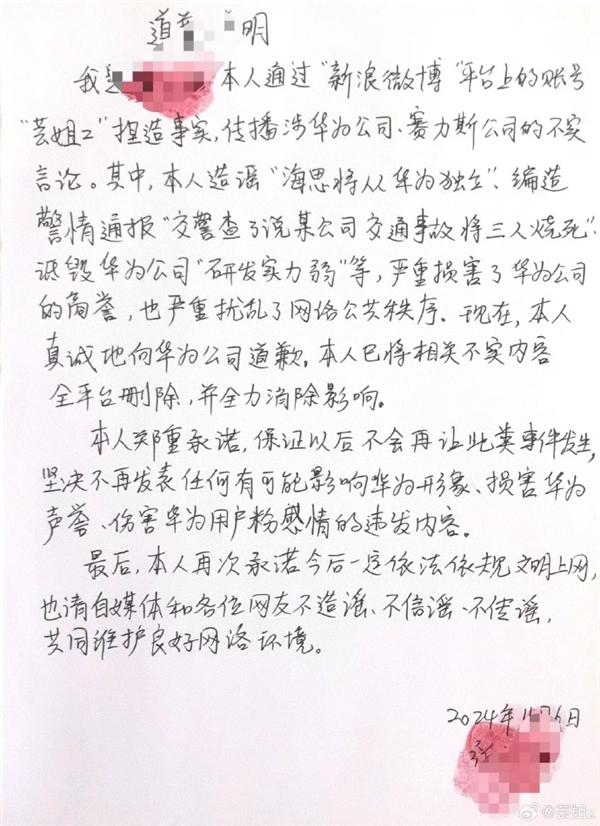 道 明
我是 本人通过“新浪微博”平台上的账号
“芸姐z”捏造事实,传播涉华为公司、赛力斯公司的不实
言论。其中,本人造谣“海思将从华为独立”、编造
警情通报“交警查了说某公司交通事故将三人烧死”、
诋毁华为公司“研发实力弱”等,严重损害了华为公司
的商誉,也严重扰乱了网络公共秩序。现在,本人
真诚地向华为公司道歉。本人已将相关不实内容
全平台删除,并全力消除影响。
本人郑重承诺,保证以后不会再让此类事件发生,
坚决不再发表任何有可能影响华为形象、损害华为
声誉、伤害华为用户粉感情的违发内容。
最后,本人再次承诺今后一定依法依规文明上网,
也请自媒体和各位网友不造谣、不信谣、不传谣,
共同维护良好网络环境。
2024年 日
@芸姐z